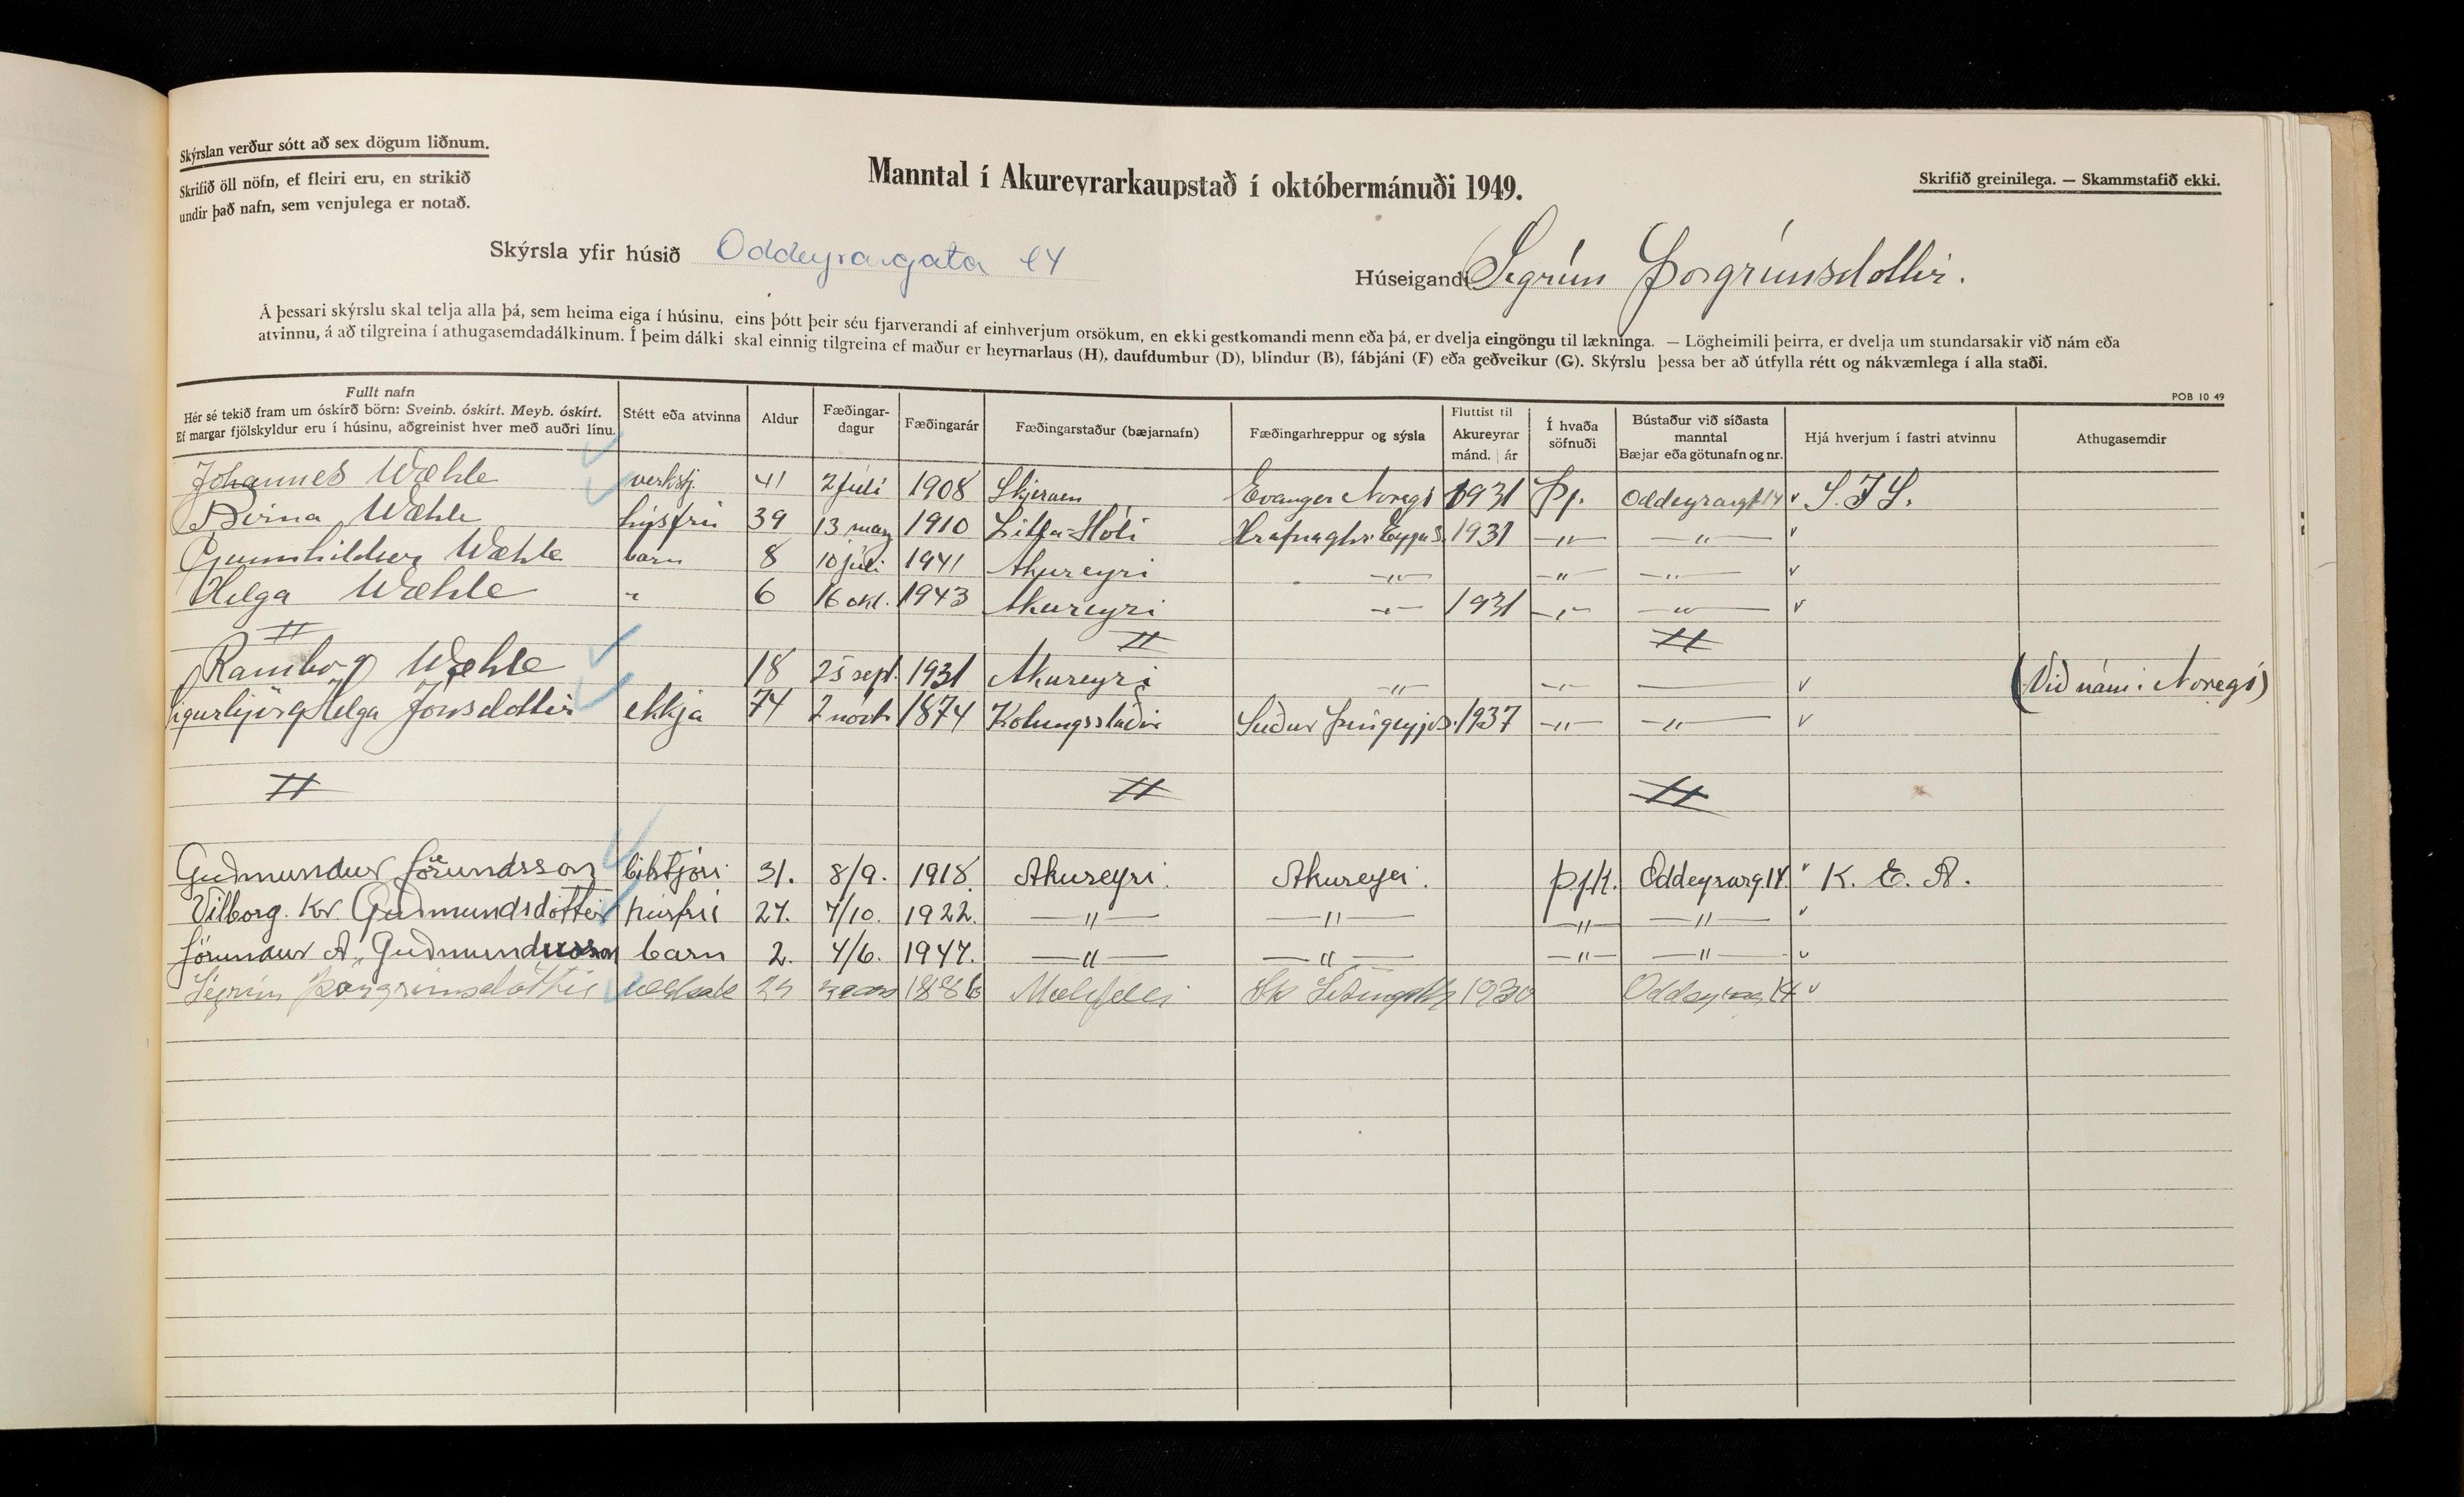 Skýrslan verður sótt að sex dögum liðnum.
Skrifið öll nöfn, ef fleiri eru, en strikið
undir það nafn, sem venjulega er notað.
Manntal í Akureyrarkaupstað í októbermánuði 1949.
Skrifið greinilega. — Skammstafið ekki.
Skýrsla yfir húsið Oddeyrargata 14
Húseigandi Sigrún Þorgrímsdóttir.
Á þessari skýrslu skal telja alla þá, sem heima eiga í húsinu, eins þótt þeir séu fjarverandi af einhverjum orsökum, en ekki gestkomandi menn eða þá, er dvelja eingöngu til lækninga. — Lögheimili þeirra, er dvelja um stundarsakir við nám eða
atvinnu, á að tilgreina í athugasemdadálkinum. Í þeim dálki skal einnig tilgreina ef maður er heyrnarlaus (H), daufdumbur (D), blindur (B), fábjáni (F) eða geðveikur (G). Skýrslu þessa ber að útfylla rétt og nákvæmlega í alla staði.
POB 10 49
Fullt nafn
Hér sé tekið fram um óskírð börn: Sveinb. óskírt. Meyb. óskírt.
Ef margar fjölskyldur eru í húsinu, aðgreinist hver með auðri línu.
Stétt eða atvinna
Aldur
Fæðingar-
dagur
Fæðingarár
Fæðingarstaður (bæjarnafn)
Fæðingarhreppur og sýsla
Fluttist til
Akureyrar
mánd. ár
Í hvaða
söfnuði
Bústaður við síðasta
manntal
Bæjar eða götunafn og nr.
Hjá hverjum í fastri atvinnu
Athugasemdir
Johannes Wæhle verkstj. 41 2 júlí 1908 Skjerven Evanger Noregi 1931 Þj. Oddeyrargt 14 S.Í.S.
Birna Wæhle húsfrú 39 13 marz 1910 Litla-Hóli Hrafnaglhr. Eyjas. 1931 —"— —"—
Gunnhildur Wæhle barn 8 10 júlí 1941 Akureyri —"— —"— —"—
Helga Wæhle " 6 16 okt. 1943 Akureyri —"— 1931 —"— —"—
Ramborg Wæhle 18 25 sept. 1931 Akureyri —"— —"— — (Við nám í Noregi)
Sigurbjörg Helga Jónsdóttir ekkja 74 2 nóvb 1874 Suður Þingeyjs. 1937 —"— —"—
Guðmundur Jörundsson bílstjóri 31. 8/9. 1918. Akureyri. Akureyri. þjk. Oddeyrarg. 14. K. E. A.
Vilborg. Kr. Guðmundsdóttir húsfrú 27. 7/10. 1922. —"— —"— —"— —"—
Jörundur A. Guðmundsson barn 2. 4/6. 1947. —"— —"— —"— —"—
Sigrún Þorgrímsdóttir 1886 Mælifelli 1930 Oddeyrarg 14